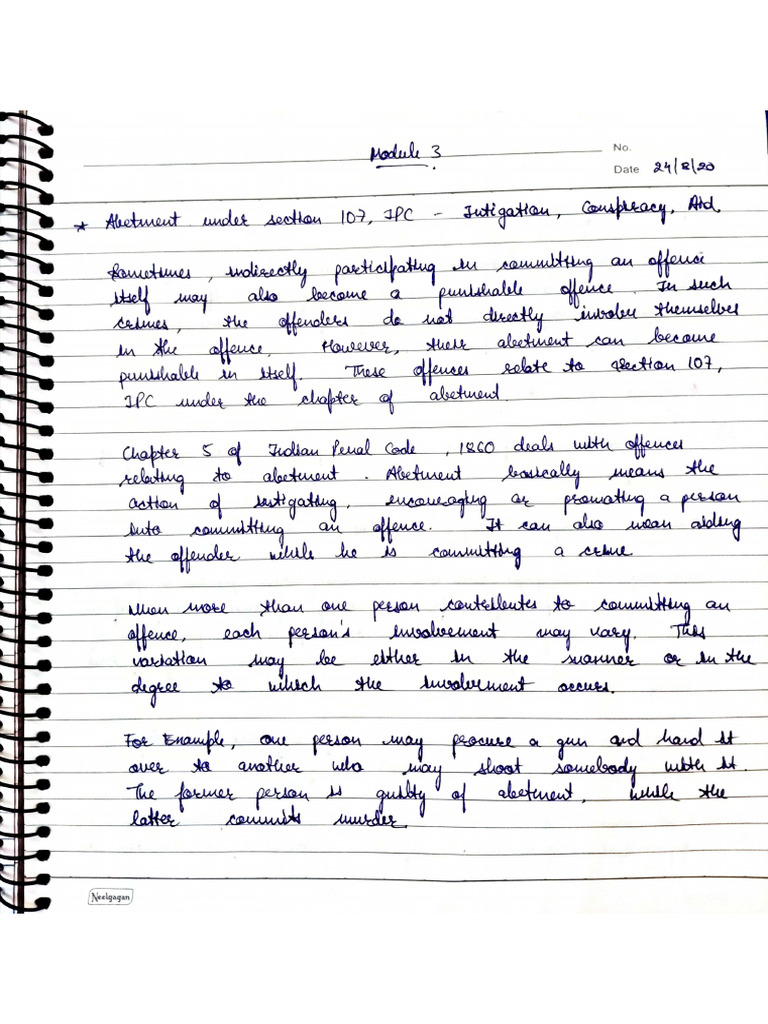 Module 3
No.
Date 24/8/20
* Abetment under section 107, IPC - Intigation, Conspiracy, Aid.
Sometimes, indirectly participating in committing an offence
itself may also become a punishable offence. In such
crimes, the offenders do not directly involve themselves
in the offence. However, their abetment can become
punishable in itself. These offences relate to section 107,
IPC under the chapter of abetment.
Chapter 5 of Indian Penal Code, 1860 deals with offences
relating to abetment. Abetment basically means the
action of instigating, encouraging or promoting a person
into committing an offence. It can also mean aiding
the offender while he is committing a crime
When more than one person contributes to committing an
offence, each person's involvement may vary. This
variation may be either in the manner or in the
degree to which the involvement occurs.
For Example, one person may procure a gun and hand it
over to another who may shoot somebody with it.
The former person is guilty of abetment, while the
latter commits murder.
Neelgagan